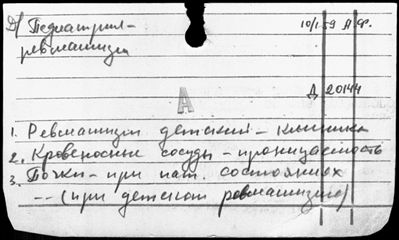 Д/ Педиатрия- 10/I 59 А.Ф.
ревматизм
Д 20144
А
1. Ревматизм детский - клиника
2. Кровеносные сосуды - проницаемость
3. Почки - при пат. состояниях
-- (при детском ревматизме)